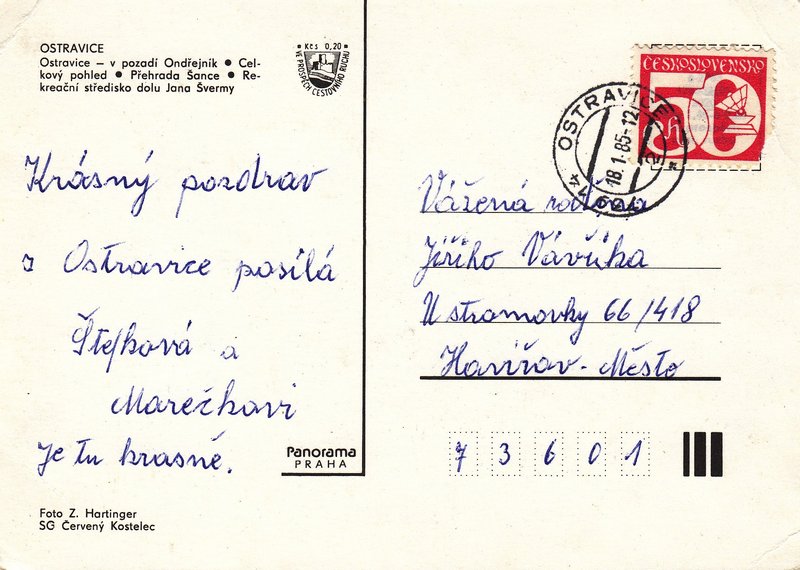 OSTRAVICE
Ostravice – v pozadí Ondřejník ● Cel-
kový pohled ● Přehrada Šance ● Re-
kreační středisko dolu Jana Švermy
Kčs 0,20
VE PROSPĚCH CESTOVNÍHO RUCHU
Krásný pozdrav
z Ostravice posílá
Štefková a
Marečkovi
Je tu krasně.
Panorama
PRAHA
Foto Z. Hartinger
SG Červený Kostelec
ČESKOSLOVENSKO
50
h
OSTRAVICE
18.1.85-12
739 14
Vážená rodina
Jiřího Vávůka
U stromovky 66/418
Havířov - Město
7 3 6 0 1